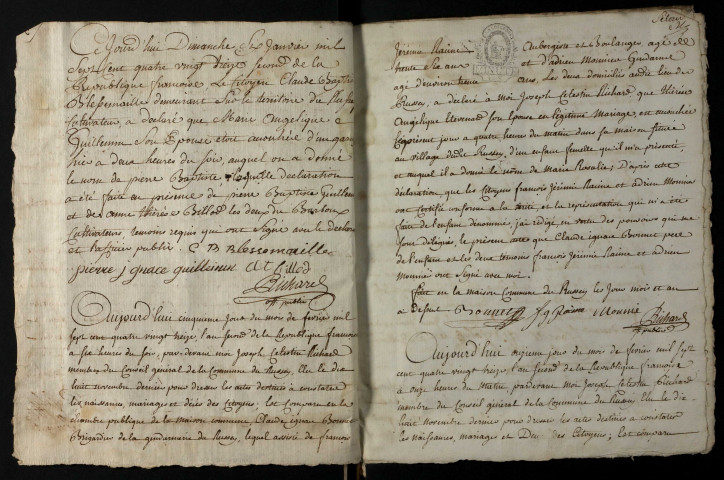 Ce Jourd'hui Dimanche Six Janvier mil
Sept Cent quatre vingt treize second de la
Republique francoise, le Citoyen Claude Baptiste
Blessemaille demeurant Sur le territoire du Russey
Cultivateur, a déclaré que Marie Angelique
Guillemin Son Epouse etoit accouchée d'un garçon
hier à deux heures du soir, auquel on a donné
le nom de pierre Baptiste laquelle declaration
a été faite en presence de pierre Baptiste Guillemin
et de anne therese Billod les deux du
Cultivateurs temoins requis qui ont Signé avec le declarant
et l'officier public C B Blessemaille
pierre ignace guillemin A t billod
Richard
off public
Aujourd'hui cinquieme jour du mois de fevrier mil
sept cent quatre vingt treize, l'an second de la Republique françoise
à six heures du soir, par devant moi Joseph Celestin Richard
membre du Conseil general de la Commune du Russey, Elu le dix
huit novembre dernier pour dresser les actes destinés à constater
les naissances, mariages et décès des Citoyens; Est Comparu en la
chambre publique de la maison commune, Claude ignace Bouvet
Brigadier de la gendarmerie du Russey, lequel assisté de françois
Jérémie Racine Aubergiste et Boulanger agé de
trente six ans et d'adrien Monnier Gendarme
agé d'environ trente ans, les deux domiciliés audit lieu du
Russey, a déclaré à Moi Joseph Celestin Richard que thérèse
Angélique Son Epouse en légitime Mariage, est accouchée
jour à quatre heures du matin dans sa maison située
au village dudit Russey, d'un enfant femelle qu'il m'a presenté,
et auquel il a donné le nom de Marie Rosalie; D'après cette
déclaration que les Citoyens François Jérémie Racine et adrien Monnier
ont Certifié conforme à la vérité et la représentation qui m'a été
faite de l'enfant dénommé, j'ai rédigé, en vertu des pouvoirs qui me
sont délégués, le présent acte que Claude ignace Bouvet pere
de l'enfant et les deux temoins françois Jérémie Racine et adrien
Monnier ont Signé avec moi.
fait en la maison Commune du Russey les Jour mois et an
cy Dessus Bouvet f j Racine Monnier
Richard
off public
Aujourd'hui onzieme jour du mois de fevrier mil sept
cent quatre vingt treize, l'an second de la République françoise
à onze heures du Matin, pardevant moi Joseph Celestin Richard
membre du Conseil général de la Commune du Russey Elu le dix
huit Novembre dernier pour dresser les actes destinés a constater
les naissances, mariages et Décès des Citoyens; Est comparu